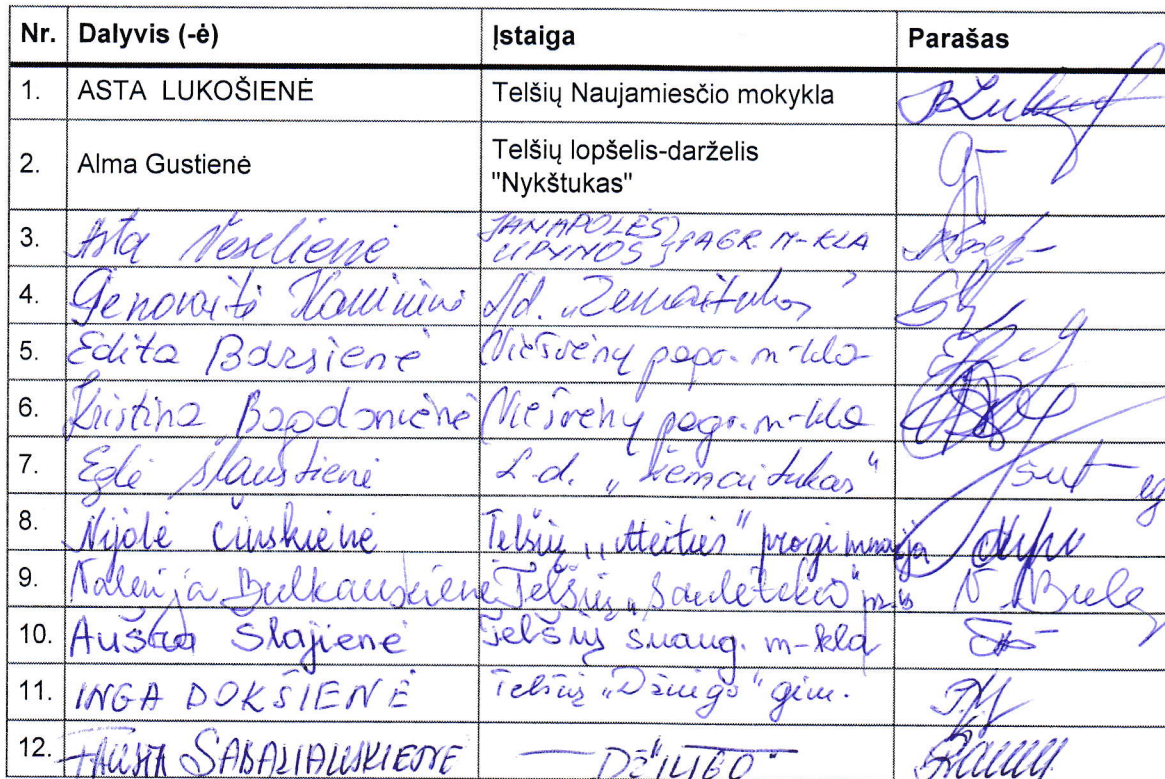 Nr. Dalyvis (-ė) Įstaiga Parašas
1. ASTA LUKOŠIENĖ Telšių Naujamiesčio mokykla
2. Alma Gustienė Telšių lopšelis-darželis
"Nykštukas"
3. Asta Neselienė JANAPOLĖS UPYNOS PAGR. M-KLA
4. Genovaitė l/d. „Žemaitukas"
5. Edita Barsienė Viešvėnų pagr. m-kla
6. Kristina Bagdonienė Viešvėnų pagr. m-kla
7. Eglė Slaustienė L-d. „Žemaitukas"
8. Nijolė Činskienė Telšių „Ateities" progimnazija
9. Valerija Bulkauskienė Telšių „Saulėtekio"
10. Aušra Šlajienė Telšių suaug. m-kla
11. INGA DOKŠIENĖ Telšių „Džiugo" gim.
12. SABALIAUSKIENE — DŽIUGO"